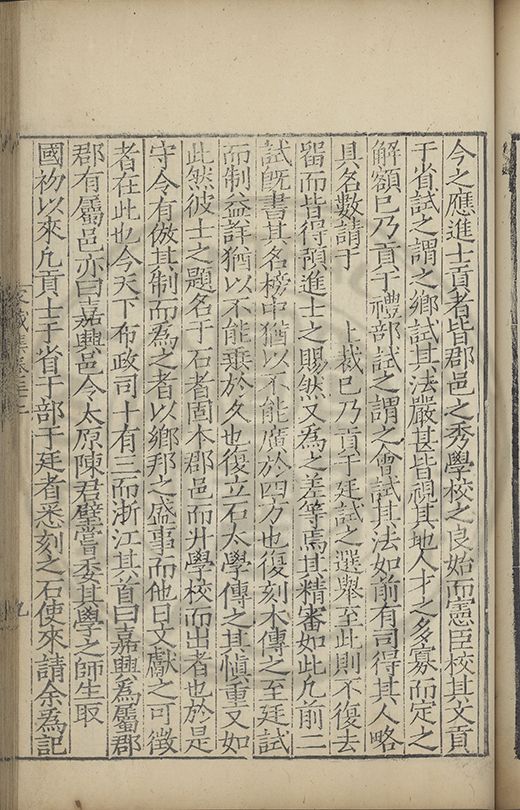 今之應進士貢者皆郡邑之秀學校之良始而憲臣校其文貢
于省試之謂之鄉試其法嚴甚皆視其地人才之多寡而定之
解額巳乃貢于禮部試之謂之會試其法如前有司得其人略
具名數請于 上裁巳乃貢于廷試之選舉至此則不復去
畱而皆得預進士之賜然又為之差等焉其精審如此凢前二
試旣書其名榜中猶以不能廣於四方也復刻木傳之至廷試
而制益詳猶以不能垂於久也復立石太學傳之其慎重又如
此然彼士之題名于石者固本郡邑而升學校而出者也於是
守令有倣其制而為之者以鄉邦之盛事而他日文獻之可徵
者在此也今天下布政司十有三而浙江其首曰嘉興為屬郡
郡有屬邑亦曰嘉興邑令太原陳君璧嘗委其學之師生取
國初以來凢貢士于省于部于廷者悉刻之石使來請余為記
家藏集卷三十二
九